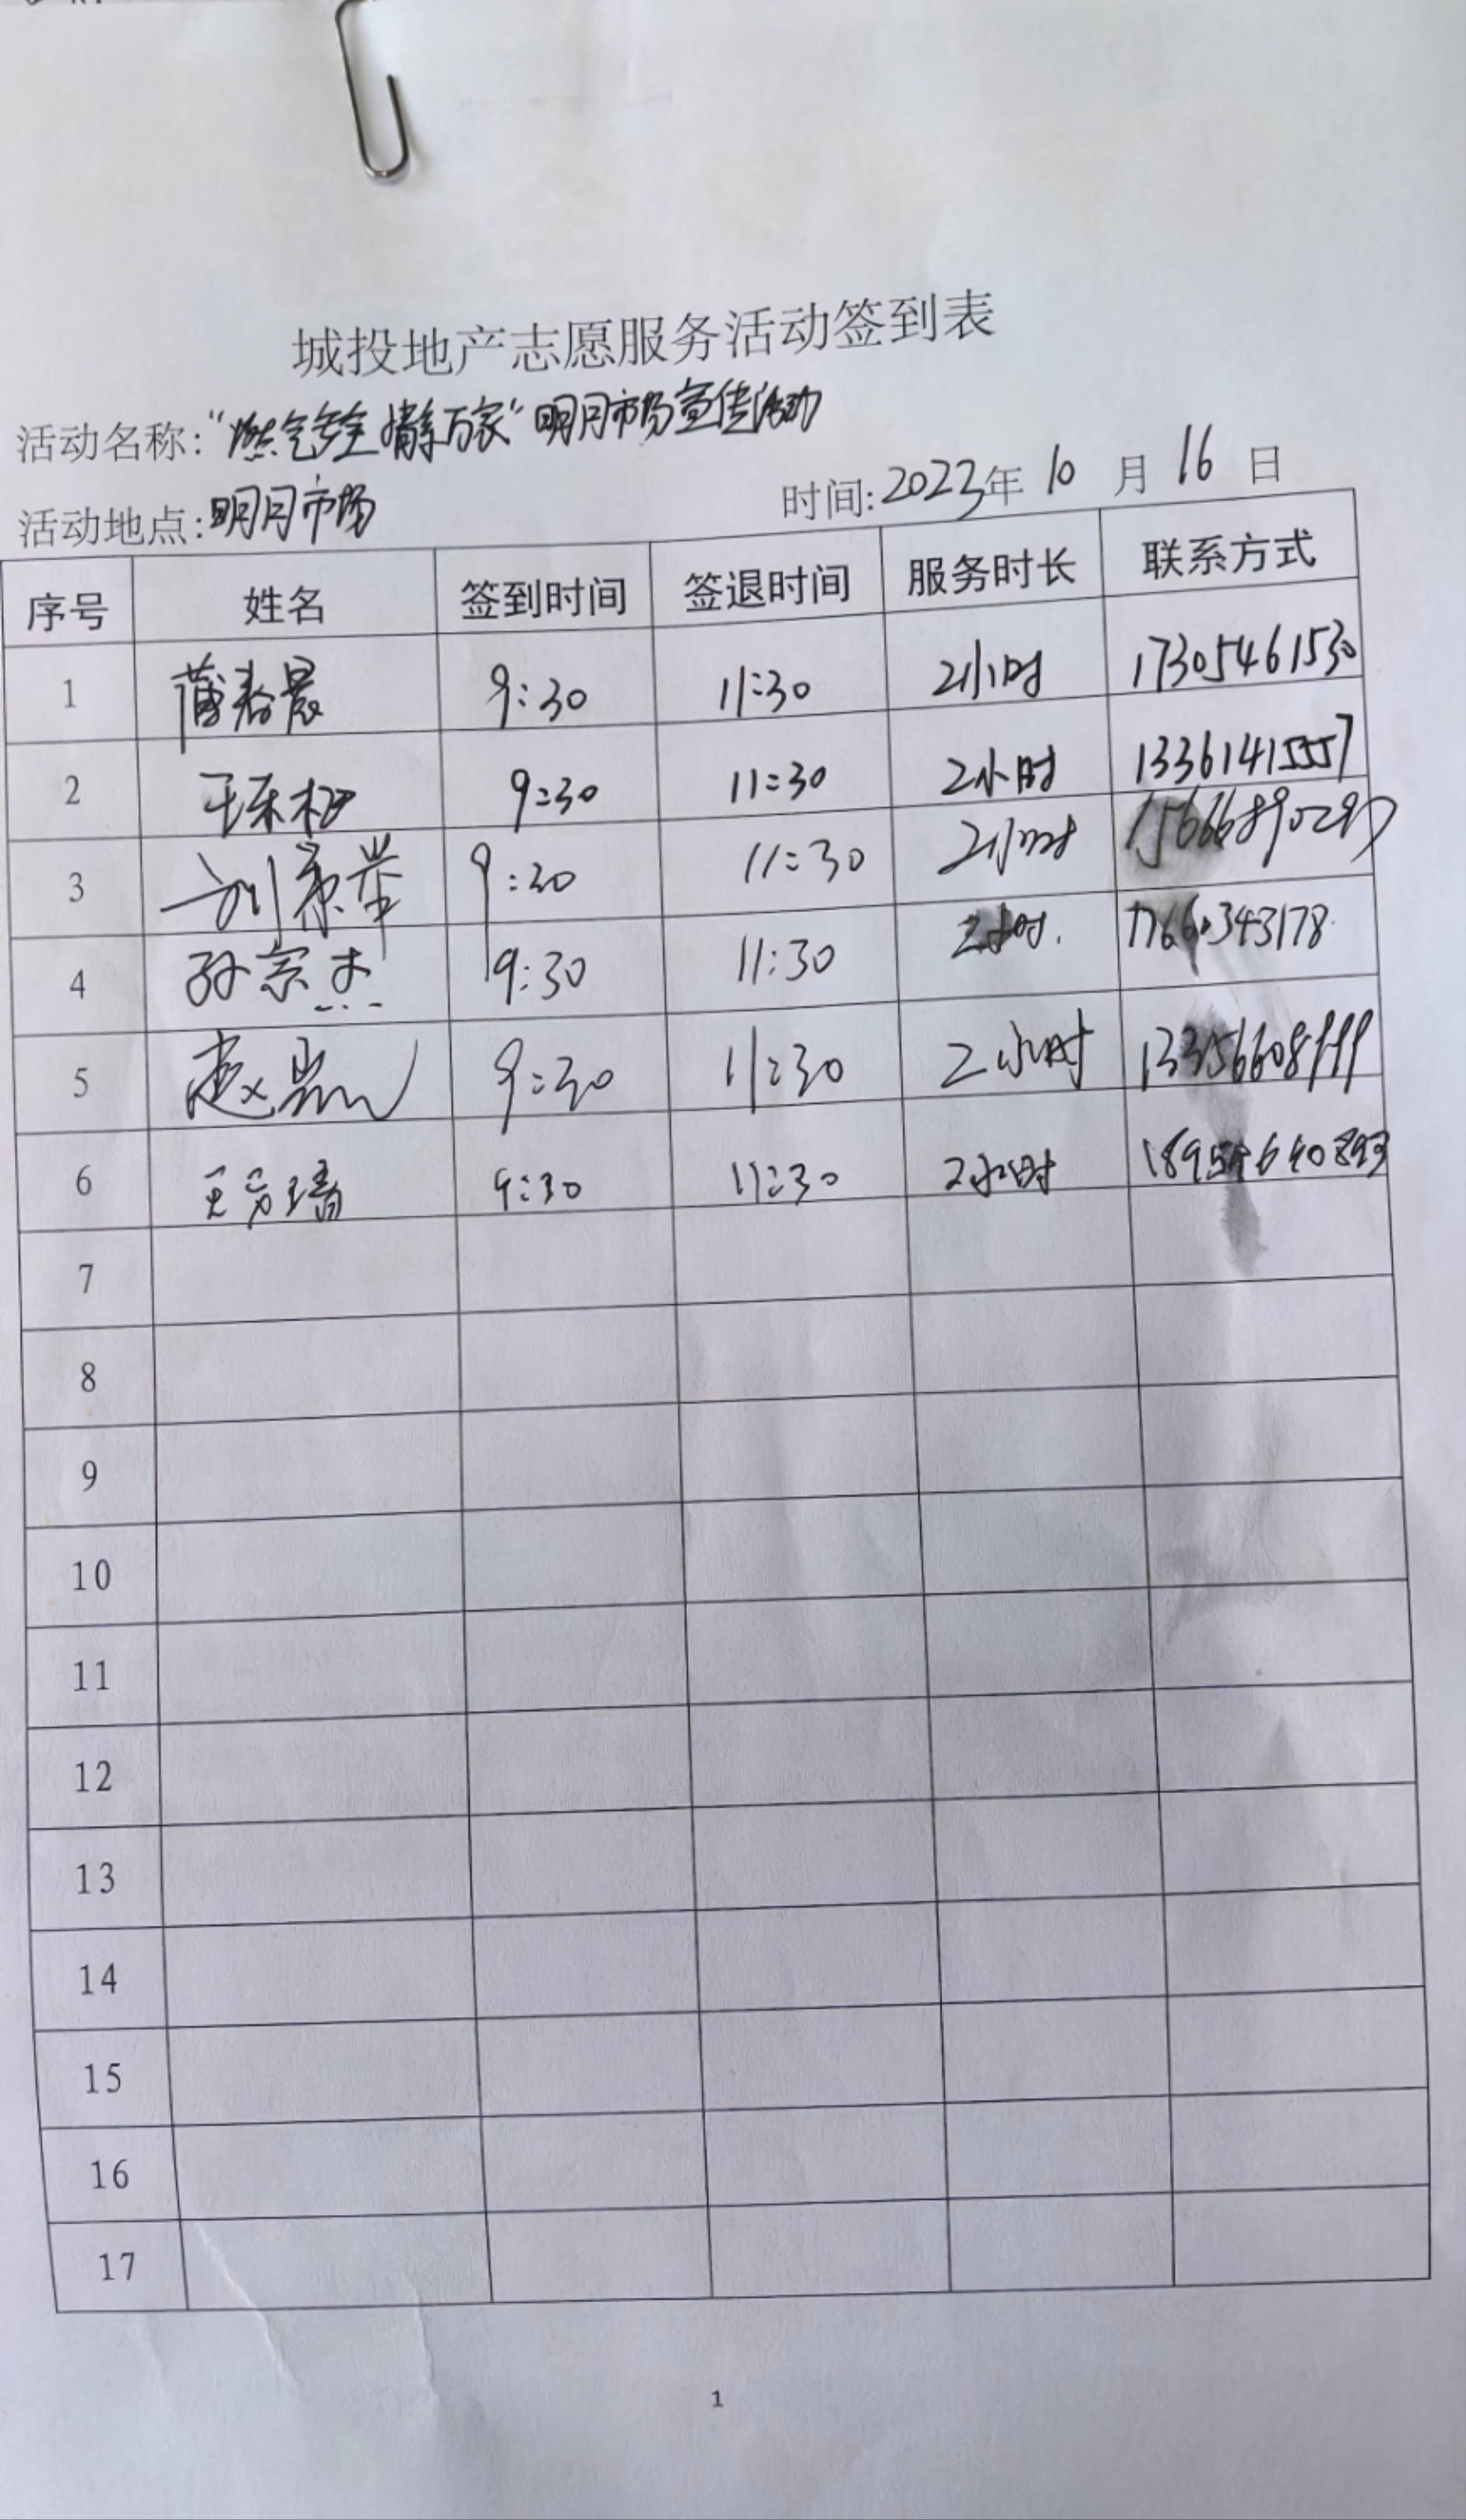 城投地产志愿服务活动签到表
活动名称:“燃气安全 情系万家”明月市场宣传活动
活动地点:明月市场 时间:2023年10月16日
序号 姓名 签到时间 签退时间 服务时长 联系方式
1 蒲春晨 9:30 11:30 2小时 17305461530
2 9:30 11:30 2小时 13361415557
3 刘景华 9:30 11:30 2小时
4 孙宗杰 9:30 11:30 2小时. 17660343178
5 赵岩 9:30 11:30 2小时
6 9:30 11:30 2小时
7
8
9
10
11
12
13
14
15
16
17
1